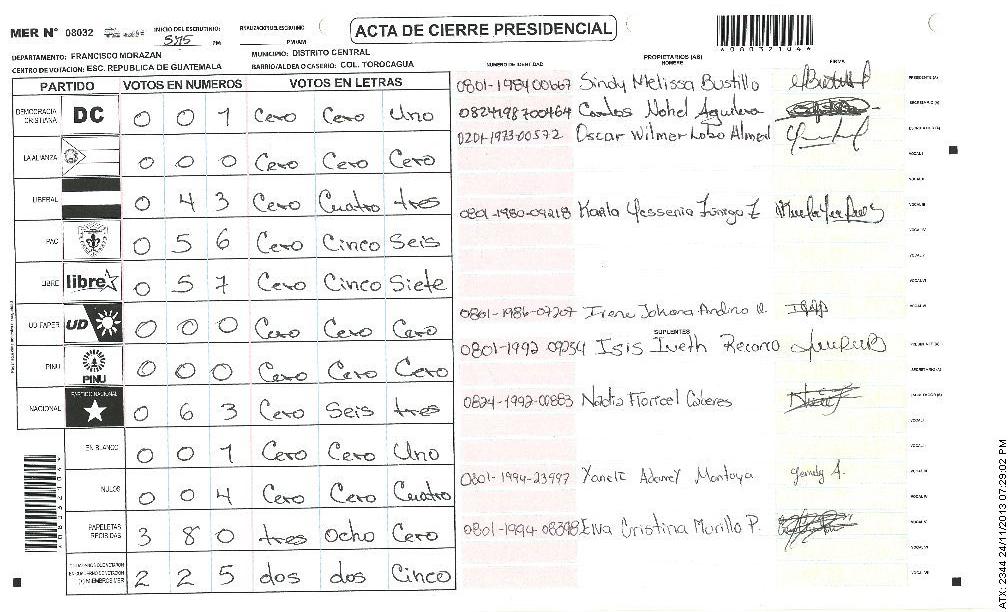 MER N° 08032
INICIO DEL ESCRUTINIO: 5:15 PM
ACTA DE CIERRE PRESIDENCIAL
A080321044
DEPARTAMENTO: FRANCISCO MORAZAN
MUNICIPIO: DISTRITO CENTRAL
CENTRO DE VOTACION: ESC. REPUBLICA DE GUATEMALA
BARRIO/ALDEA O CASERIO: COL. TOROCAGUA
PARTIDO VOTOS EN NUMEROS VOTOS EN LETRAS
NUMERO DE IDENTIDAD PROPIETARIOS (AS) NOMBRE FIRMA
DEMOCRACIA CRISTIANA DC 0 0 1 Cero Cero Uno
LA ALIANZA 0 0 0 Cero Cero Cero
LIBERAL 0 4 3 Cero Cuatro tres
PAC 0 5 6 Cero Cinco Seis
LIBRE libre 0 5 7 Cero Cinco Siete
UD FAPER UD 0 0 0 Cero Cero Cero
PINU PINU 0 0 0 Cero Cero Cero
NACIONAL PARTIDO NACIONAL 0 6 3 Cero Seis tres
EN BLANCO 0 0 1 Cero Cero Uno
NULOS 0 0 4 Cero Cero Cuatro
PAPELETAS RECIBIDAS 3 8 0 tres Ocho Cero
2 2 5 dos dos Cinco
0801-1984 00667 Sindy Melissa Bustillo
PRESIDENTE (A)
0824198700464 Carlos Nohel Aguilera
SECRETARIO (A)
0201-1973-00572 Oscar Wilmer Lobo Almed
VOCAL I
0801-1980-09218 Karla Yessenia Zuniga Z
0801-1986-07207 Irene Johana Andino
SUPLENTES
0801-1992 09254 Isis Iveth Recarco
0824-1992-00883 Floricel
0801-1994-23997
0801-1994 08398 Elva Cristina Murillo P.
ATX: 2344 24/11/2013 07:29:02 PM